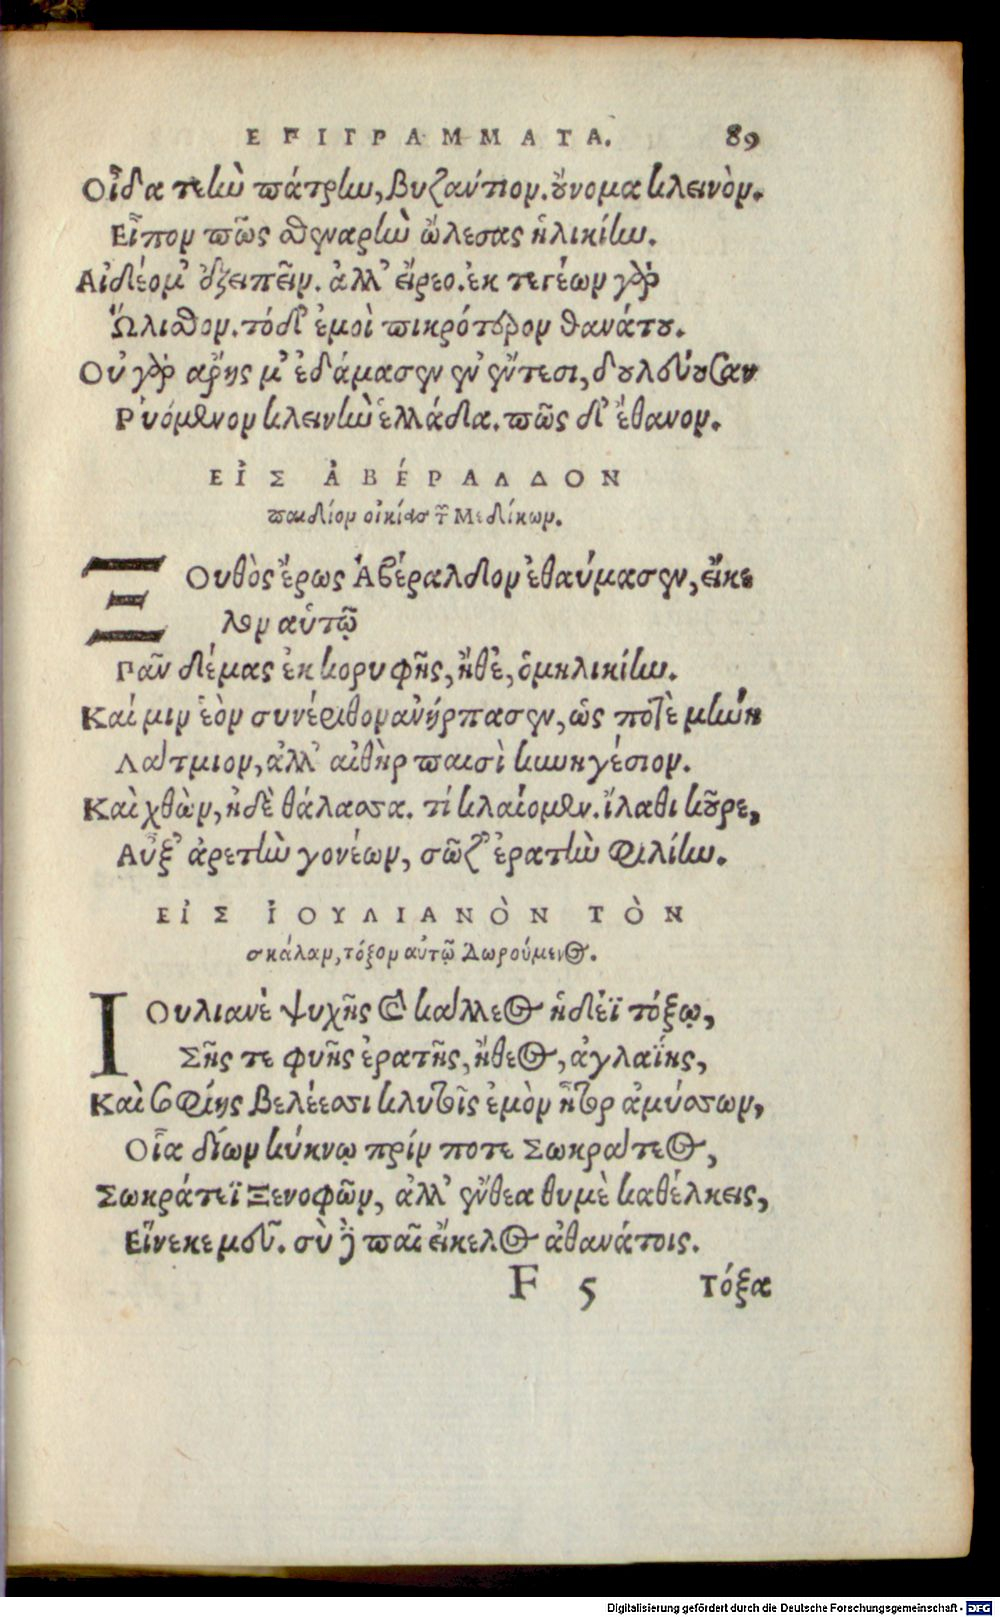 ΕΠΙΓΡΑΜΜΑΤΑ. 89
Οἶδα τεὴν πάτρην, Βυζάντιον. οὔνομα κλεινὸν.
Εἶπον πῶς σθεναρὴν ὤλεσας ἡλικίην.
Αἰδέομ' ἐξειπεῖν. ἀλλ' εἴρεο. ἐκ τεγέων γὰρ
Ὤλισθον. τό δ' ἐμοὶ πικρότερον θανάτου.
Οὐ γὰρ αρἤης μ' ἐδάμασεν ἐν ἔντεσι, δουλεύουσαν
Ρ'υόμενον κλεινὴν ἑλλάδα. πῶς δ' ἔθανον.
ΕἸΣ ἈΒΈΡΑΛΔΟΝ
παιδίον οἰκίας τῶν Μεδίκων.
ΞΟυθὸς ἔρως Ἀβέραλδον ἐθαύμασεν, εἴκε
λον αὑτῷ
Παῖν δέμας ἐκ κορυφῆς, ἤθε, ὁμηλικίην.
Καί μιν ἑὸν συνέριθον ἀνήρπασεν, ὡς ποτὲ μήνη
Λάτμιον, ἀλλ' αἰθὴρ παισὶ κυνηγέσιον.
Καὶ χθὼν, ἠδὲ θάλασσα. τί κλαίομεν. ἵλαθι κοῦρε,
Αὖξ' ἀρετὴν γονέων, σῶζ' ἐρατὴν φιλίην.
ΕἸΣ ἸΟΥΛΙΑΝῸΝ ΤῸΝ
σκάλαν, τόξον αὐτῷ δωρούμενος.
ΙΟυλιανὲ ψυχῆς σᾶ κάλλεος ἡδέϊ τόξῳ,
Σῆς τε φυῆς ἐρατῆς, ἤθεος, ἀγλαΐης,
Καὶ σοφίης βελέεσσι κλυτοῖς ἐμὸν ἦτορ ἀμύσσων,
Οἷα δίων κύκνῳ πρίν ποτε Σωκράτεος,
Σωκράτεϊ Ξενοφῶν, ἀλλ' ἔνθεα θυμὲ καθέλκεις,
Εἵνεκε μεῦ. σὺ δὲ παῖ εἴκελος ἀθανάτοις.
F 5 Τόξα
Digitalisierung gefördert durch die Deutsche Forschungsgemeinschaft - DFG